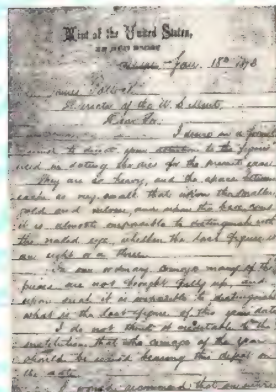 Mint of the United States,
Philada. Jany. 18th 1873
James Pollock
Director of the U. S. Mint.
Dear Sir.
I desire in a formal
manner to direct your attention to the "figures"
used in dating the dies for the present year.
They are so heavy, and the space between
each so very small that upon the smaller
gold and silver, and upon the base coins
it is almost impossible to distinguish with
the naked eye, whether the last figure is
an eight or a three.
In our ordinary coinage many of the
pieces are not brought fully up, and
upon such it is impossible to distinguish
what is the last figure of the year date
I do not think it creditable to the
institution that the coinage of the year
should be issued bearing this defect in
the date.
I would recommend that an